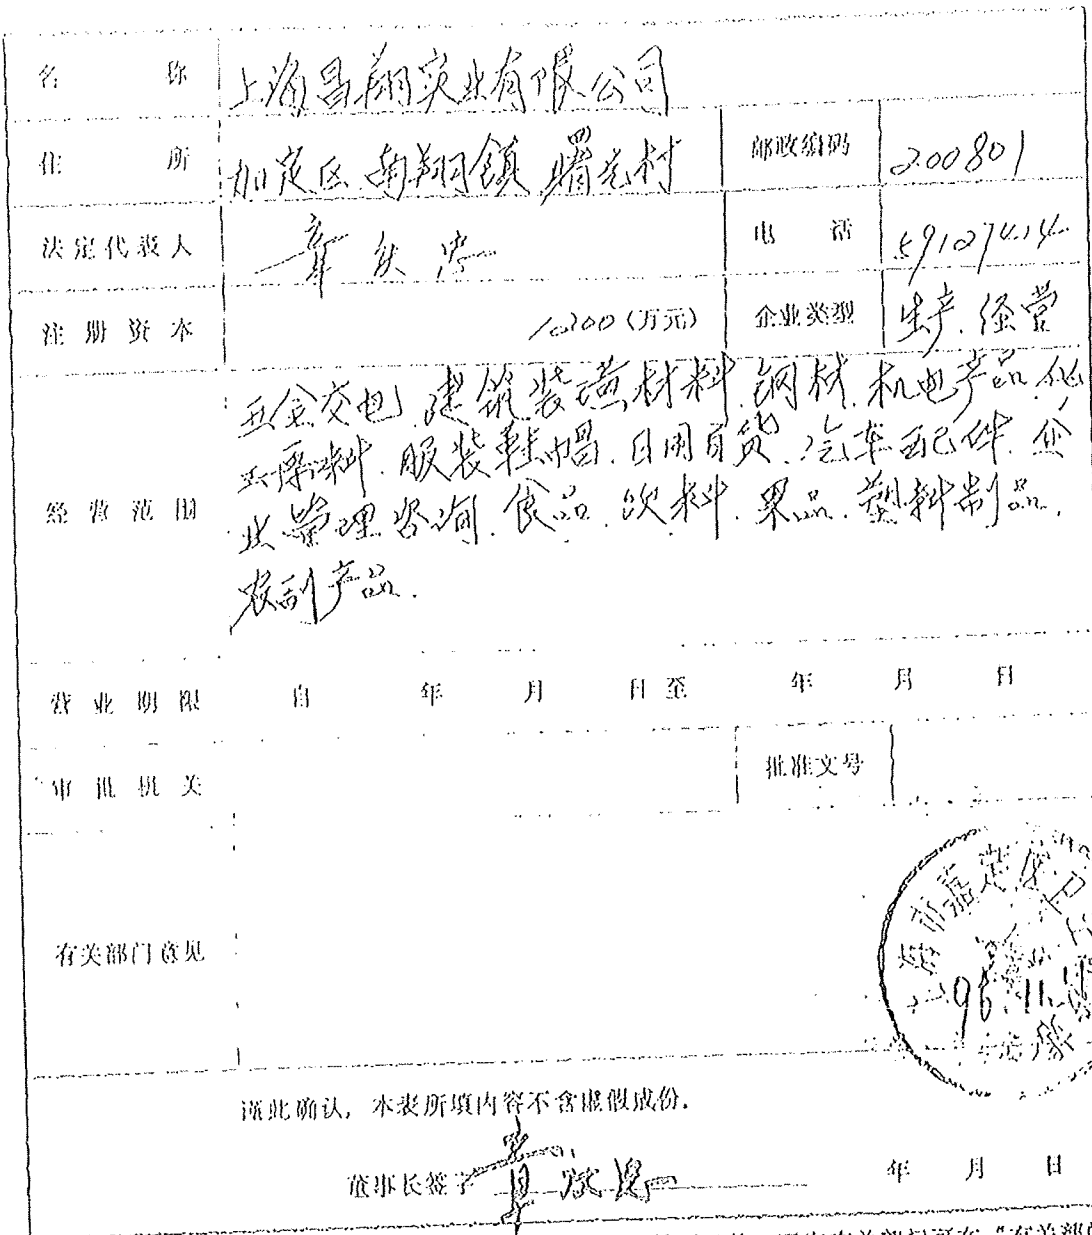 名 称 上海昌翔实业有限公司
住 所 加定区南翔镇曙光村 邮政编码 200801
法定代表人 章 电 话 59127414
注 册 资 本 (万元) 企业类型 生产.经营
五金交电.建筑装潢材料.钢材.机电产品.化
工原料.服装鞋帽.日用百货.汽车配件.企
经 营 范 围
业管理咨询.食品.饮料.果品.塑料制品.
农副产品.
营 业 期 限 自 年 月 日至 年 月 日
审 批 机 关 批准文号
有关部门意见
上海市嘉定区卫
96.11.11
谨此确认，本表所填内容不含虚假成份.
董事长签字 章 年 月 日